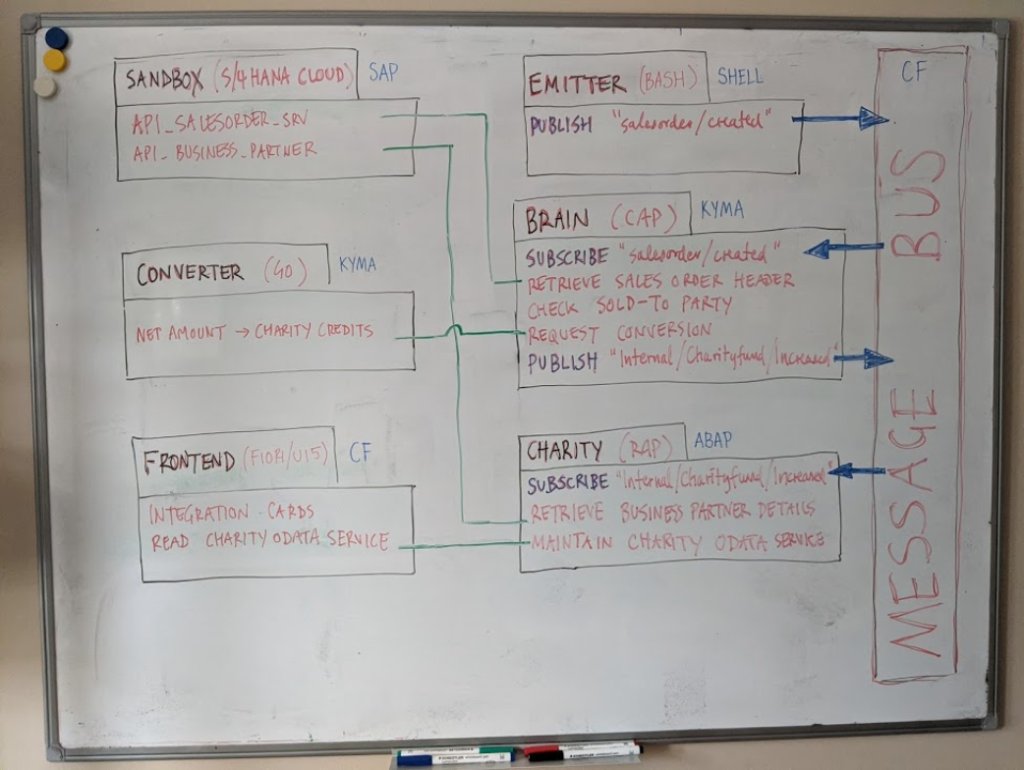 SANDBOX (S/4HANA CLOUD) SAP
API_SALESORDER_SRV
API_BUSINESS_PARTNER
CONVERTER (GO) KYMA
NET AMOUNT → CHARITY CREDITS
FRONTEND (FIORI/UI5) CF
INTEGRATION CARDS
READ CHARITY ODATA SERVICE
EMITTER (BASH) SHELL
PUBLISH "salesorder/created"
BRAIN (CAP) KYMA
SUBSCRIBE "salesorder/created"
RETRIEVE SALES ORDER HEADER
CHECK SOLD-TO PARTY
REQUEST CONVERSION
PUBLISH "Internal/Charityfund/Increased"
CHARITY (RAP) ABAP
SUBSCRIBE "Internal/Charityfund/Increased"
RETRIEVE BUSINESS PARTNER DETAILS
MAINTAIN CHARITY ODATA SERVICE
CF
MESSAGE BUS